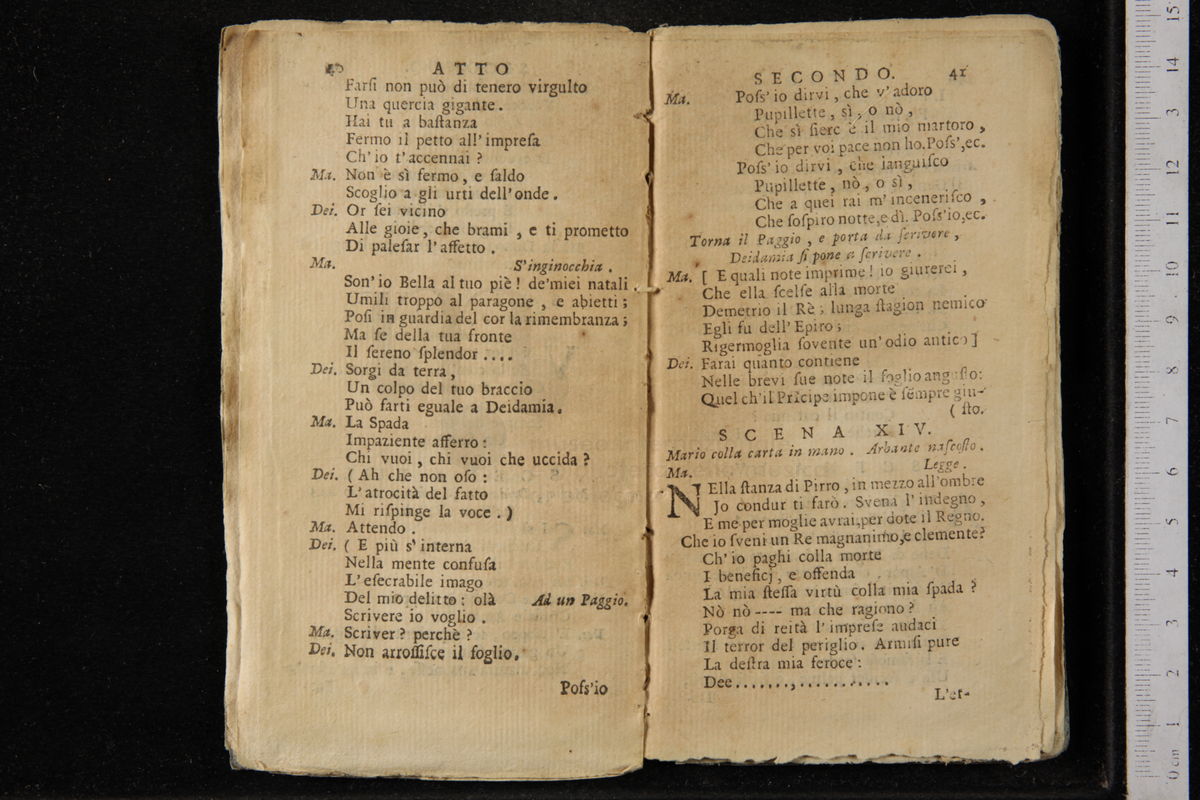 40 ATTO
Farſi non può di tenero virgulto
Una quercia gigante.
Hai tu a baſtanza
Fermo il petto all'impreſa
Ch'io t'accennai ?
Ma. Non è sì fermo, e ſaldo
Scoglio a gli urti dell'onde.
Dei. Or ſei vicino
Alle gioie, che brami, e ti prometto
Di paleſar l'affetto.
Ma. S'inginocchia.
Son'io Bella al tuo piè! de'miei natali
Umili troppo al paragone, e abietti;
Poſi in guardia del cor la rimembranza;
Ma ſe della tua fronte
Il ſereno ſplendor....
Dei. Sorgi da terra,
Un colpo del tuo braccio
Può farti eguale a Deidamia.
Ma. La Spada
Impaziente afferro:
Chi vuoi, chi vuoi che uccida?
Dei. (Ah che non oſo:
L'atrocità del fatto
Mi riſpinge la voce.)
Ma. Attendo.
Dei. (E più s'interna
Nella mente confuſa
L'eſecrabile imago
Del mio delitto: olà Ad un Paggio.
Scrivere io voglio.
Ma. Scriver? perchè?
Dei. Non arroſſiſce il foglio.
Poſs'io
SECONDO. 41
Ma. Poſs'io dirvi, che v'adoro
Pupillette, sì, o nò,
Che sì fiero è il mio martoro,
Che per voi pace non ho. Poſs',ec.
Poſs'io dirvi, che languiſco
Pupillette, nò, o sì,
Che a quei rai m'inceneriſco,
Che ſoſpiro notte,e dì. Poſs'io,ec.
Torna il Paggio, e porta da ſcrivere,
Deidamia ſi pone a ſcrivere.
Ma. [E quali note imprime! io giurerei,
Che ella ſcelſe alla morte
Demetrio il Rè; lunga ſtagion nemico
Egli fu dell'Epiro;
Rigermoglia ſovente un'odio antico]
Dei. Farai quanto contiene
Nelle brevi ſue note il foglio anguſto:
Quel ch'il Prĩcipe impone è ſempre giu-
(ſto.
SCENA XIV.
Mario colla carta in mano. Arbante naſcoſto.
Ma. Legge.
NElla ſtanza di Pirro, in mezzo all'ombre
Jo condur ti farò. Svena l'indegno,
E me per moglie avrai,per dote il Regno.
Che io ſveni un Re magnanimo,e clemente?
Ch'io paghi colla morte
I beneficj, e offenda
La mia ſteſſa virtù colla mia ſpada?
Nò nò ---- ma che ragiono?
Porga di reità l'impreſe audaci
Il terror del periglio. Armiſi pure
La deſtra mia feroce:
Dee.......,..........
L'ef-